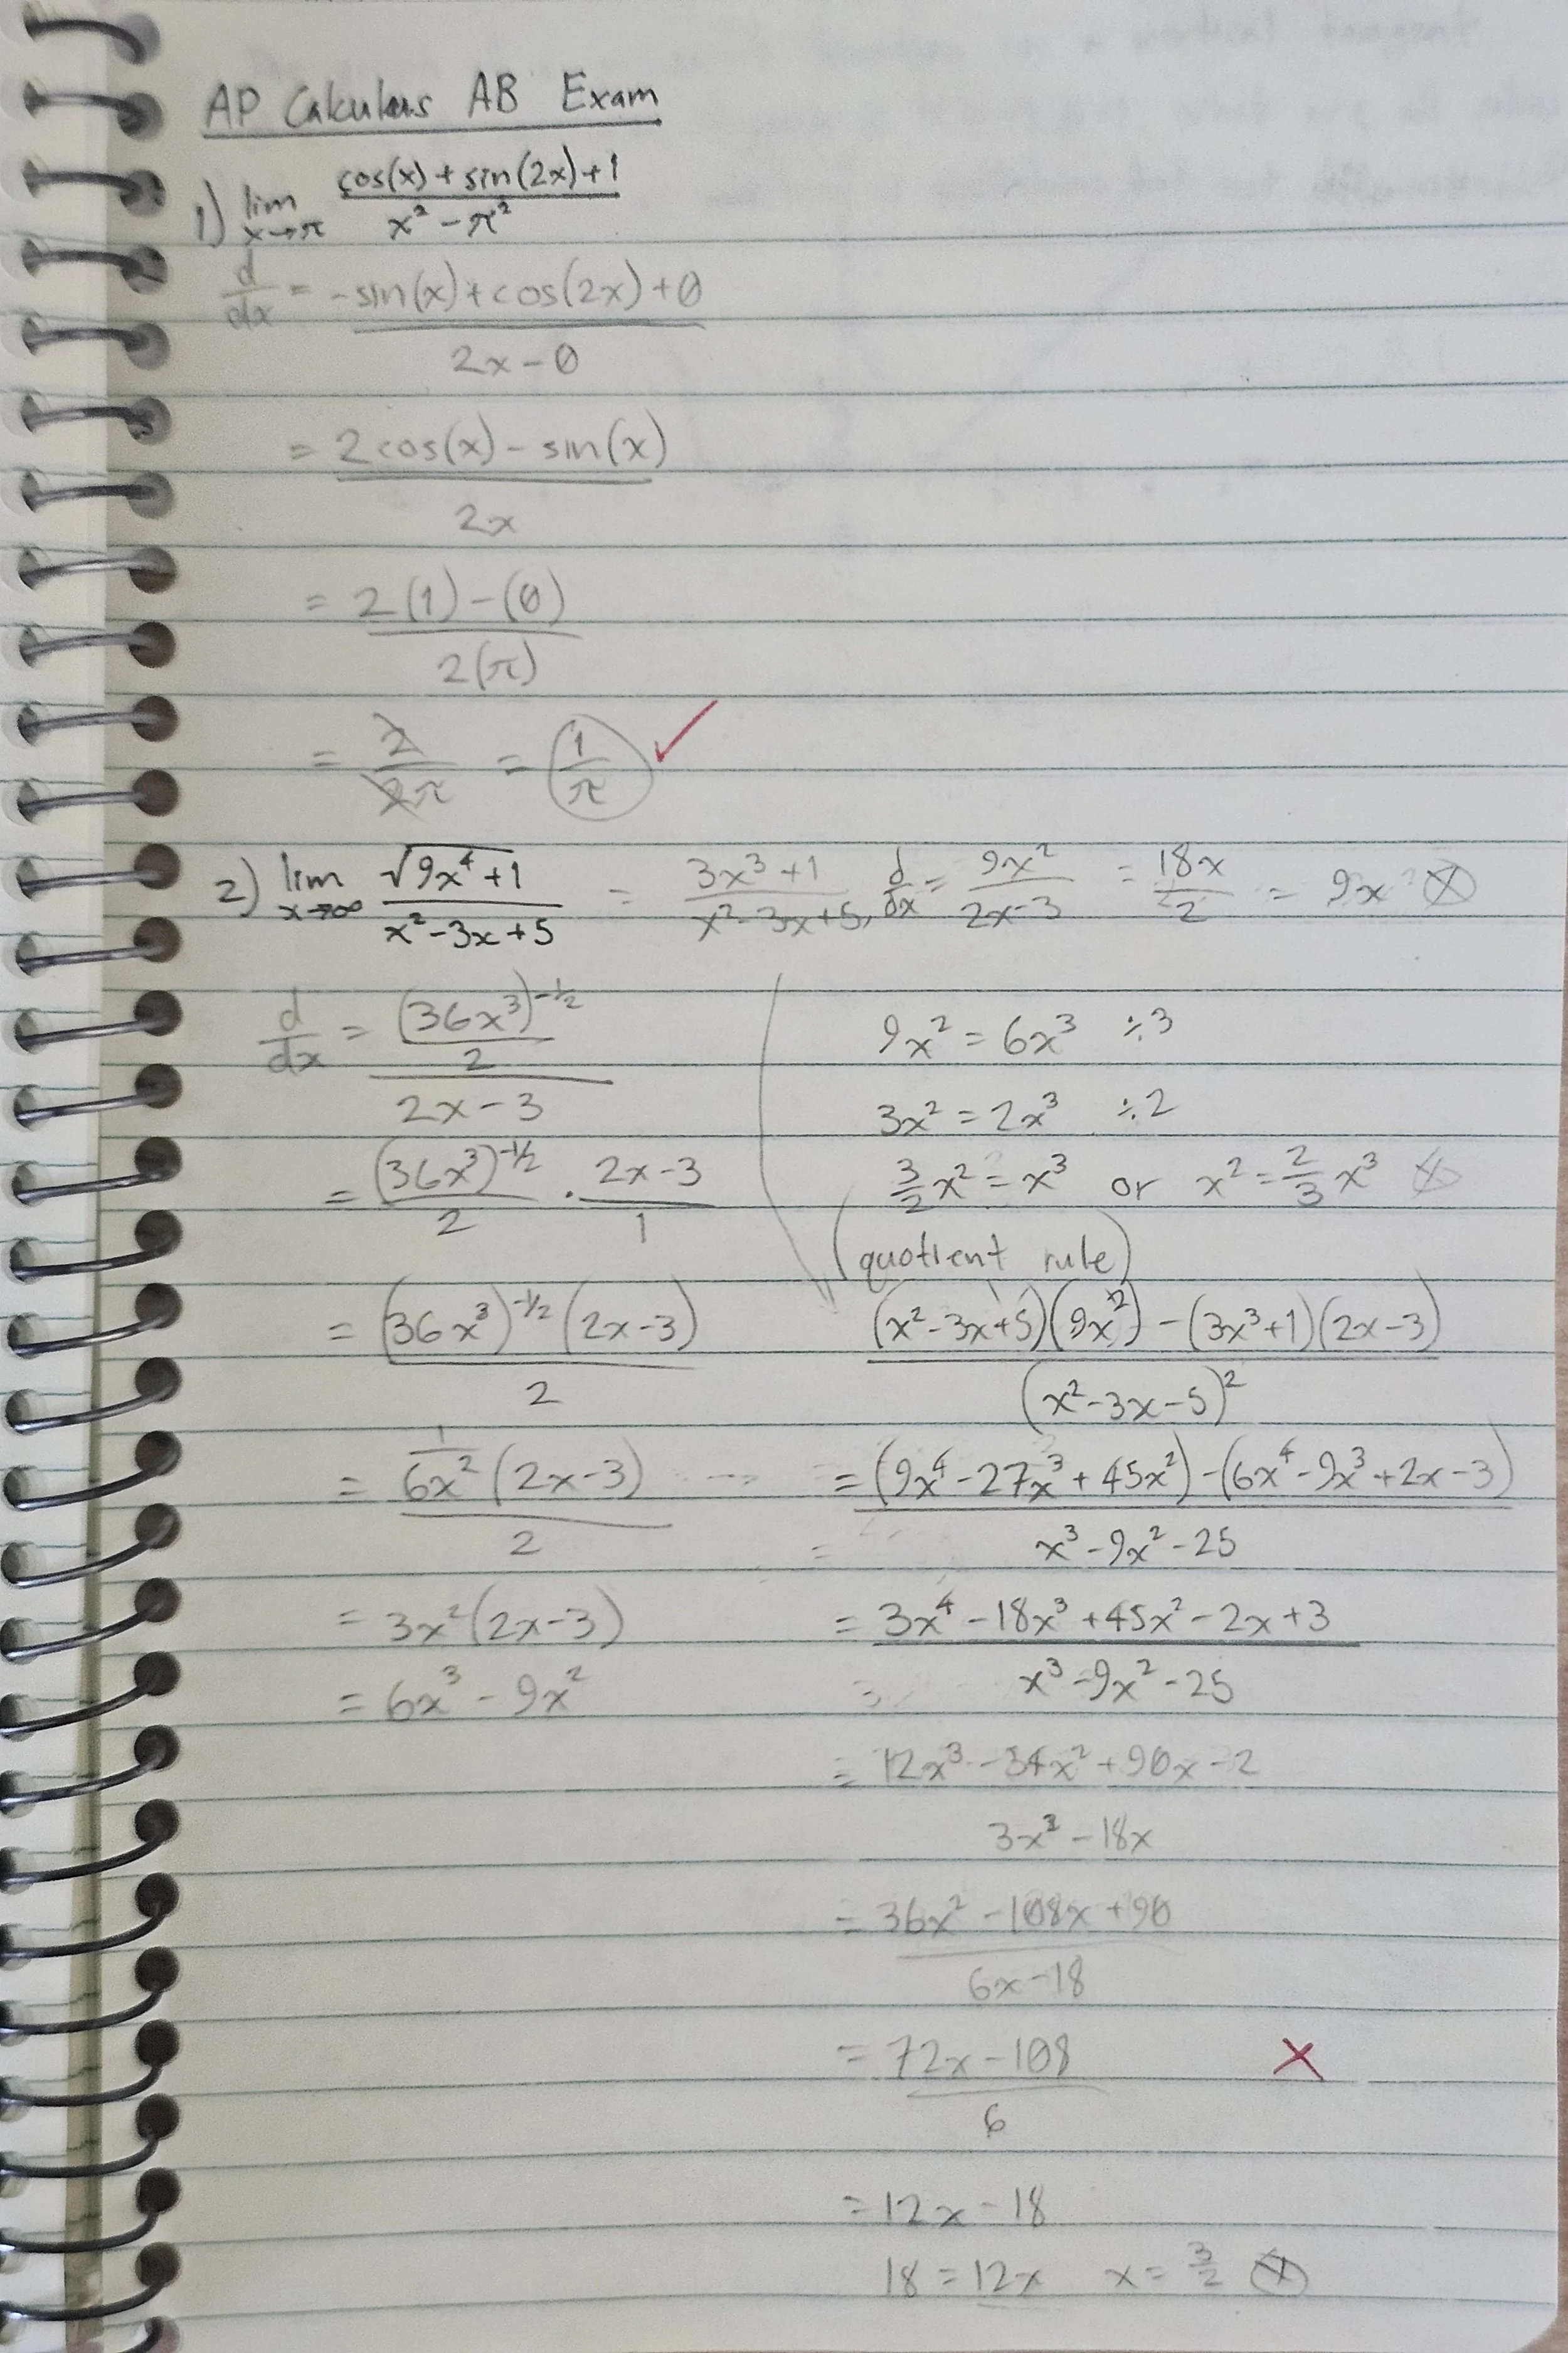 AP Calculus AB Exam
1) lim x→π (cos(x) + sin(2x) + 1) / (x² - π²)
d/dx = (-sin(x) + cos(2x) + 0) / (2x - 0)
= (2cos(x) - sin(x)) / 2x
= (2(1) - (0)) / 2(π)
= 2/2π = 1/π ✓
2) lim x→∞ √(9x⁴ + 1) / (x² - 3x + 5) = (3x³ + 1) / (x² - 3x + 5), d/dx = 9x² / (2x - 3) = 18x / 2 = 9x ⊗
d/dx = ((36x³)^(-1/2) / 2) / (2x - 3)
= (36x³)^(-1/2) / 2 · (2x - 3) / 1
= (36x³)^(-1/2) (2x - 3) / 2
= (1/6x² (2x - 3)) / 2
= 3x² (2x - 3)
= 6x³ - 9x²
9x² = 6x³ ÷3
3x² = 2x³ ÷2
3/2 x² = x³ or x² = 2/3 x³ ⊗
(quotient rule)
((x² - 3x + 5)(9x²) - (3x³ + 1)(2x - 3)) / (x² - 3x - 5)²
= ((9x⁴ - 27x³ + 45x²) - (6x⁴ - 9x³ + 2x - 3)) / (x³ - 9x² - 25)
= (3x⁴ - 18x³ + 45x² - 2x + 3) / (x³ - 9x² - 25)
= (12x³ - 54x² + 90x - 2) / (3x² - 18x)
= (36x² - 108x + 90) / (6x - 18)
= (72x - 108) / 6 ✗
= 12x - 18
18 = 12x x = 3/2 ⊗